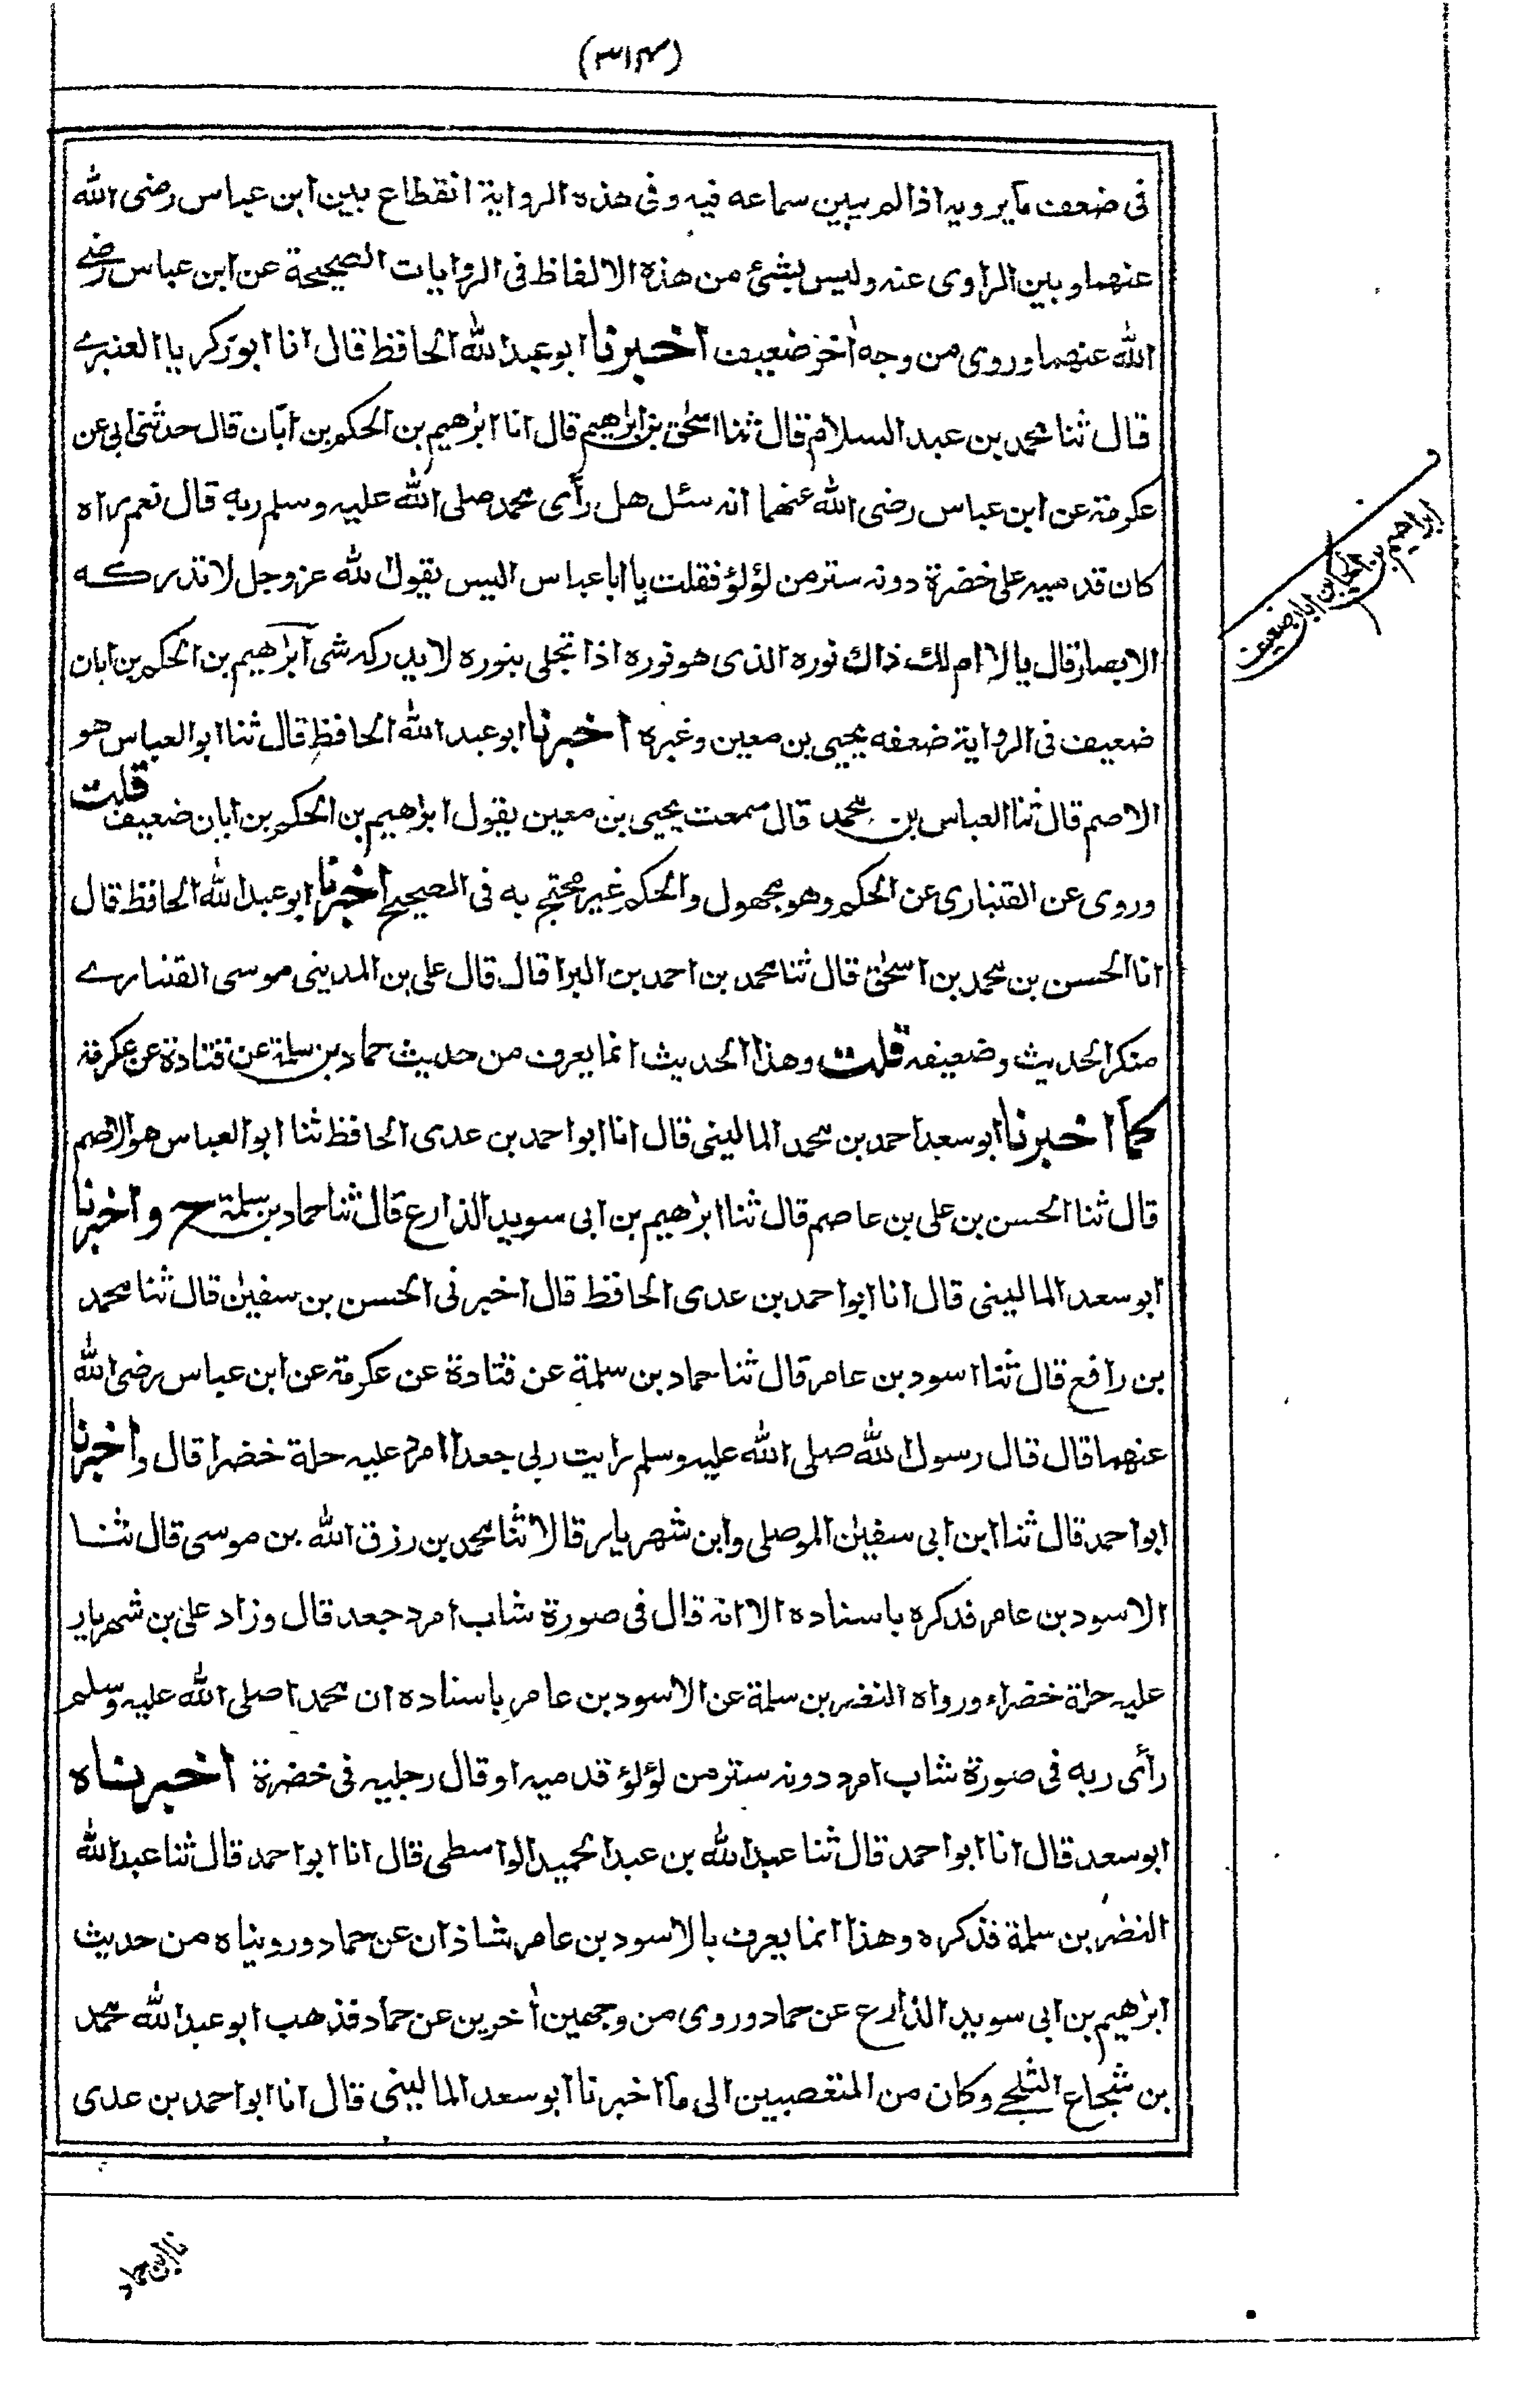 (٣١٣)
فى ضعف ما يرويه اذا لم يبين سماعه فيه وفى هذه الرواية انقطاع بين ابن عباس رضى الله
عنهما وبين الراوى عنه وليس بشئ من هذه الالفاظ فى الروايات الصحيحة عن ابن عباس رضے
الله عنهما وروى من وجه أخر ضعيف اخبرنا ابو عبد الله الحافظ قال انا ابو زكريا العنبرے
قال ثنا محمد بن عبد السلام قال ثنا اسحٰق بن ابرٰهيم قال انا ابرٰهيم بن الحكم بن ابان قال حدثنى ابى عن
عكرمة عن ابن عباس رضى الله عنهما انه سئل هل رأى محمد صلى الله عليه وسلم ربه قال نعم راه
كان قدميه على خضرة دونه ستر من لؤلؤ فقلت يا ابا عباس اليس يقول الله عز وجل لا تدركه
الابصار قال يا لا ام لك ذاك نوره الذى هو نوره اذا تجلى بنوره لا يدركه شى ابرٰهيم بن الحكم بن ابان
ضعيف فى الرواية ضعفه يحيى بن معين وغيره اخبرنا ابو عبد الله الحافظ قال ثنا ابو العباس هو
الاصم قال ثنا العباس بن محمد قال سمعت يحيى بن معين يقول ابرٰهيم بن الحكم بن ابان ضعيف قلت
وروى عن القنبارى عن الحكم وهو مجهول والحكم غير محتج به فى الصحيح اخبرنا ابو عبد الله الحافظ قال
انا الحسن بن محمد بن اسحٰق قال ثنا محمد بن احمد بن البرا قال قال على بن المدينى موسى القنبارے
منكر الحديث وضعيفه قلت وهذا الحديث انما يعرف من حديث حماد بن سلمة عن قتادة عن عكرمة
كما اخبرنا ابو سعد احمد بن محمد المالينى قال انا ابو احمد بن عدى الحافظ ثنا ابو العباس هو الاصم
قال ثنا الحسن بن على بن عاصم قال ثنا ابرٰهيم بن ابى سويد الذارع قال ثنا حماد بن سلمة ح واخبرنا
ابو سعد المالينى قال انا ابو احمد بن عدى الحافظ قال اخبرنى الحسن بن سفيٰن قال ثنا محمد
بن رافع قال ثنا اسود بن عامر قال ثنا حماد بن سلمة عن قتادة عن عكرمة عن ابن عباس رضى الله
عنهما قال قال رسول الله صلى الله عليه وسلم رايت ربى جعدا امرد عليه حلة خضرا قال واخبرنا
ابو احمد قال ثنا ابن ابى سفيٰن الموصلى وابن شهريار قالا ثنا محمد بن رزق الله بن موسى قال ثنا
الاسود بن عامر فذكره باسناده الا انه قال فى صورة شاب امرد جعد قال وزاد على بن شهريار
عليه حلة خضراء ورواه النضر بن سلمة عن الاسود بن عامر باسناده ان محمدا صلى الله عليه وسلم
رأى ربه فى صورة شاب امرد دونه ستر من لؤلؤ قدميه او قال رجليه فى خضرة اخبرناه
ابو سعد قال انا ابو احمد قال ثنا عبد الله بن عبد الحميد الواسطى قال انا ابو احمد قال ثنا عبد الله
النضر بن سلمة فذكره وهذا انما يعرف بالاسود بن عامر شاذان عن حماد وروينا ه من حديث
ابرٰهيم بن ابى سويد الذارع عن حماد وروى من وجهين أخرين عن حماد فذهب ابو عبد الله محمد
بن شجاع الثلجے وكان من المتعصبين الى ما اخبرنا ابو سعد المالينى قال انا ابو احمد بن عدى
ابراهيم بن الحكم بن ابان ضعيف